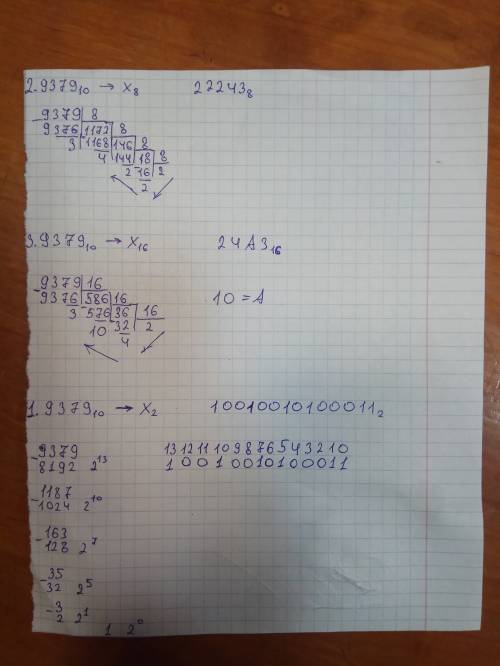 2. 9379₁₀ → X₈ 22243₈
9379 | 8
9376 | 1172 | 8
3 | 1168 | 146 | 8
4 | 144 | 18 | 8
2 | 16 | 2
2
3. 9379₁₀ → X₁₆ 24A3₁₆
9379 | 16
9376 | 586 | 16 10 = A
3 | 576 | 36 | 16
10 | 32 | 2
4
1. 9379₁₀ → X₂ 10010010100011₂
-9379 13 12 11 10 9 8 7 6 5 4 3 2 1 0
8192 2¹³ 1 0 0 1 0 0 1 0 1 0 0 0 1 1
-1187
1024 2¹⁰
-163
128 2⁷
-35
32 2⁵
-3
2 2¹
1 2⁰